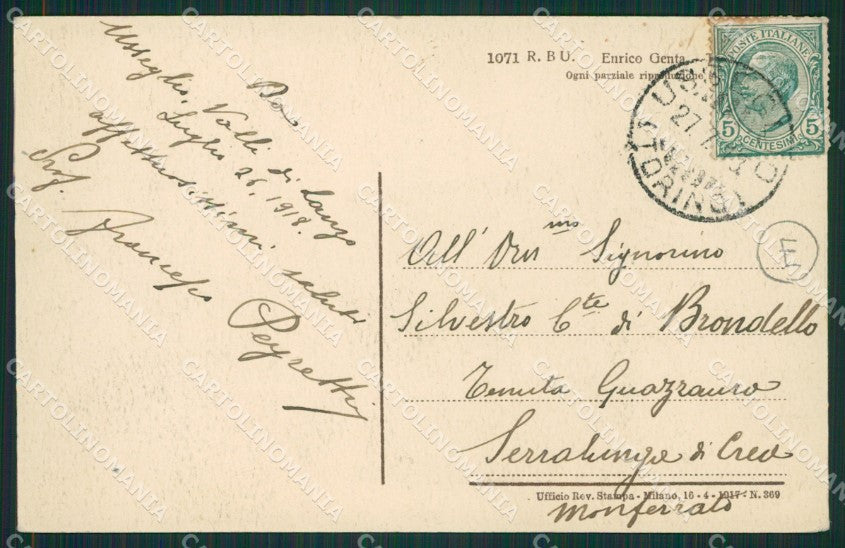 1071 R. B U. Enrico Genta
Ogni parziale riproduzione
POSTE ITALIANE
5 5
CENTESIMI
USSEGLIO
27
TORINO
Da
Usseglio, Valli di Lanzo
Luglio 26, 1918.
affettuosissimi saluti
Prof. Francesco Peyretti
All' Orn mo Signorino
Silvestro Cte di Brondello
Tenuta Guazzaura
Serralunga di Crea
Monferrato
Ufficio Rev. Stampa - Milano, 16-4-1917 - N. 369
CARTOLINOMANIA